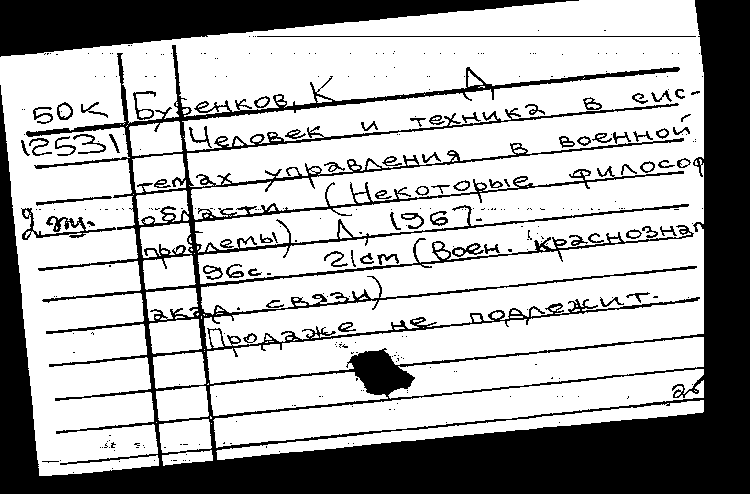 50К Бубенков, К Д
12531 Человек и техника в сис-
темах управления в военной
2 эк. области. (Некоторые философ
проблемы) Л, 1967.
96с. 21см (Воен. краснознам
акад. связи)
Продаже не подлежит.